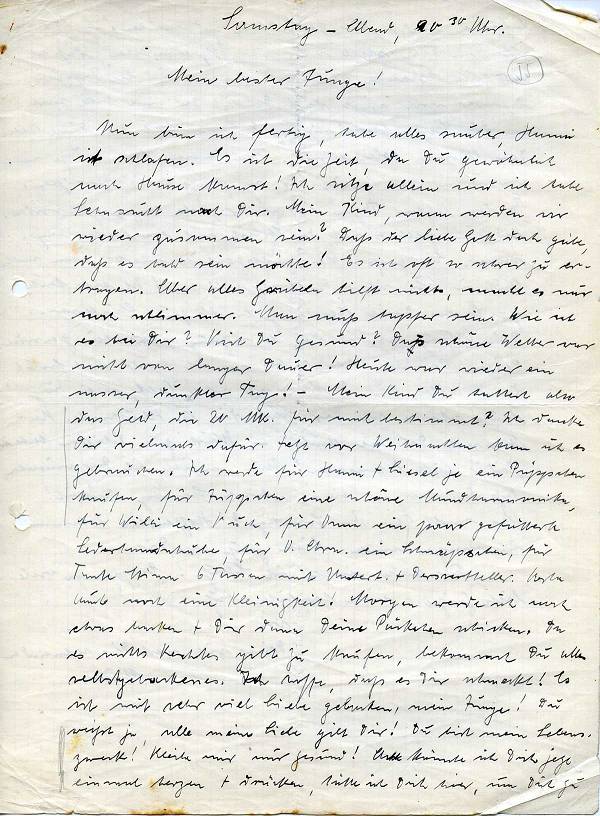 Samstag - Abend, 20 30 Uhr.
55
Mein bester Junge!
Nun bin ich fertig, habe alles sauber, Hanni
ist schlafen. Es ist die Zeit, da Du gewöhnlich
nach Hause kamst! Ich sitze allein und ich habe
Sehnsucht nach Dir. Mein Kind, wann werden wir
wieder zusammen sein? Daß der liebe Gott doch gäbe,
daß es bald sein möchte! Es ist oft so schwer zu er-
tragen. Aber alles Grübeln hilft nichts, macht es nur
noch schlimmer. Man muß tapfer sein. Wie ist
es bei Dir? Bist Du gesund? Das schöne Wetter war
nicht von langer Dauer! Heute war wieder ein
nasser, dunkler Tag! - Mein Kind Du hattest also
das Geld, die 20 Mk. für mich bestimmt? Ich danke
Dir vielmals dafür. Jetzt vor Weihnachten kann ich es
gebrauchen. Ich werde für Hanni + Liesel je ein Püppchen
kaufen, für Jüppchen eine schöne Mundharmonika,
für Willi ein Buch, für ein paar gefütterte
Lederhandschuhe, für O. ein Schnäpschen, für
Tante 6 Tassen mit Untert. + Dessertteller.
noch eine Kleinigkeit! Morgen werde ich noch
etwas backen + Dir dann Deine Päckchen schicken. Da
es nichts Rechtes gibt zu kaufen, bekommst Du alles
selbstgebackenes. Ich hoffe, daß es Dir schmeckt! Es
ist mit sehr viel Liebe gebacken, mein Junge! Du
weißt ja, alle meine Liebe gilt Dir! Du bist mein Lebens-
zweck! Bleibe mir nur gesund! Ach könnte ich Dich jetzt
einmal herzen + drücken, hätte ich Dich hier, um Dich zu